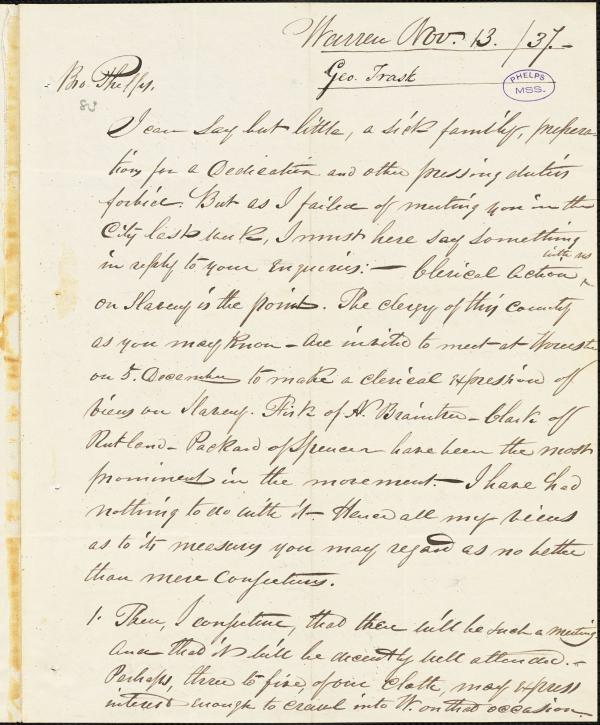 Warren Nov. 13. /37.-
Geo. Trask
PHELPS
MSS.
Bro. Phelps.
83
I can say but little, a sick family, prepera
tions for a Dedication and other pressing duties
forbid. But as I failed of meeting you in the
City last week, I must here say something
in reply to your Inquiries: - Clerical Action with us
on Slavery is the point. The clergy of this county
as you may know - are invited to meet at Worcester
on 5. December to make a clerical expression of
views on Slavery. Fisk of N. Braintree - Clark of
Rutland - Packard of Spencer have been the most
prominent in the movement. - I have had
nothing to do with it - Hence all my views
as to its measures you may regard as no better
than mere Conjectures.
1. Then, I conjecture, that there will be such a meeting
and that it will be decently well attended. -
Perhaps, three to five, of our Cloth, may express
interest enough to crawl into W. on that occasion.